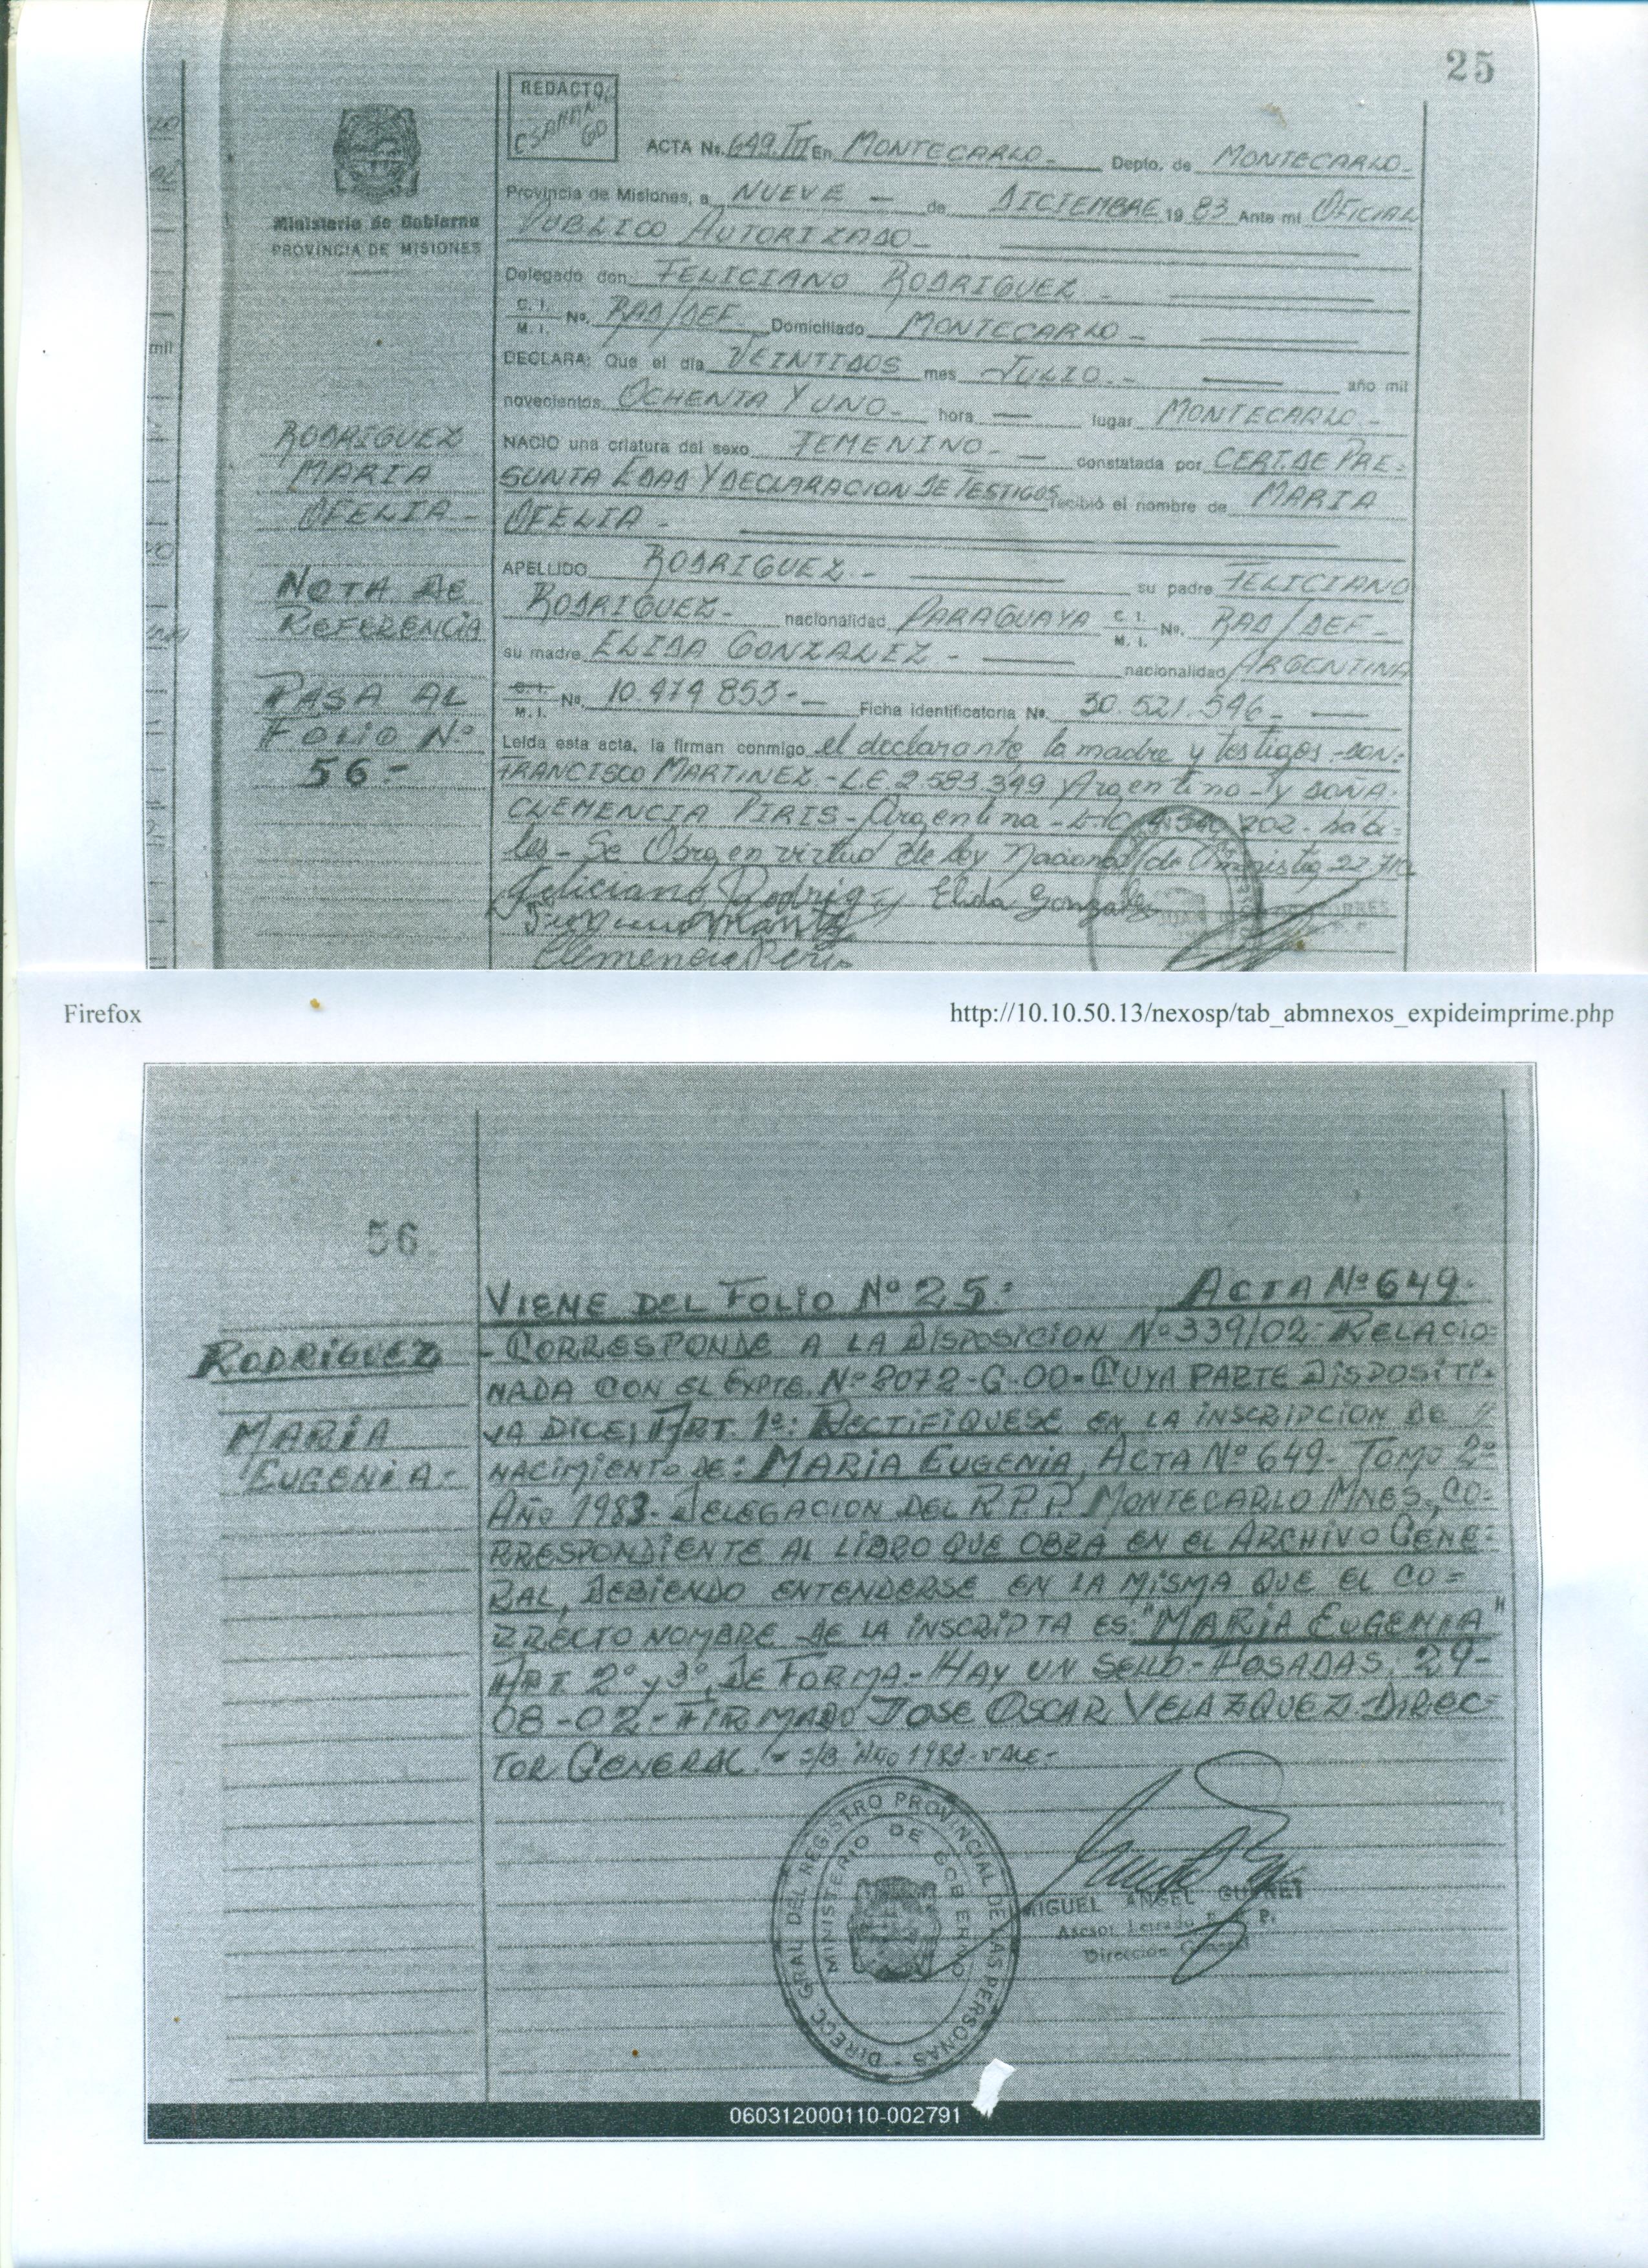 25
REDACTO
C SARMN
60
Ministerio de Gobierno
PROVINCIA DE MISIONES
ACTA No. 649 TII En MONTECARLO - Depto. de MONTECARLO -
Provincia de Misiones, a NUEVE - de DICIEMBRE 19 83 Ante mí OFICIAL
PUBLICO AUTORIZADO -
Delegado don: FELICIANO RODRIGUEZ -
C. I. M. I. No. RAD/DEF Domiciliado MONTECARLO -
DECLARA: Que el día VEINTIDOS mes JULIO - año mil
novecientos OCHENTA Y UNO - hora — lugar MONTECARLO -
NACIO una criatura del sexo FEMENINO - constatada por CERT. DE PRE=
SUNTA EDAD Y DECLARACION DE TESTIGOS recibió el nombre de MARIA
OFELIA -
APELLIDO RODRIGUEZ - su padre FELICIANO
RODRIGUEZ - nacionalidad PARAGUAYA C. I. M. I. No. RAD/DEF -
su madre ELIDA GONZALEZ - nacionalidad ARGENTINA
C. I. M. I. No. 10.474.853 - Ficha identificatoria No. 30.521.546 -
Leída esta acta, la firman conmigo el declarante, la madre y testigos - DON:
FRANCISCO MARTINEZ - L.E. 2.583.349 Argentino - y DOÑA
CLEMENCIA PIRIS - Argentina - hábi=
les - Se Obra en virtud de Ley Nacional de Amnistia
Feliciano Rodrig Elida Gonzalez
Clemencia
RODRIGUEZ
MARIA
OFELIA -
NOTA DE
REFERENCIA
PASA AL
FOLIO Nº
56 -
Firefox
http://10.10.50.13/nexosp/tab_abmnexos_expideimprime.php
56
VIENE DEL FOLIO Nº 25: ACTA Nº 649.
RODRIGUEZ
MARIA
EUGENIA -
- CORRESPONDE A LA DISPOSICION Nº 339/02 - RELACIO=
NADA CON EL EXPTE. Nº 2072-G-00 - CUYA PARTE DISPOSITI=
VA DICE; ART. 1º: RECTIFIQUESE EN LA INSCRIPCION DE
NACIMIENTO DE: MARIA EUGENIA, ACTA Nº 649 - TOMO 2º
AÑO 1983 - DELEGACION DEL R.P.P. MONTECARLO MNES, CO=
RRESPONDIENTE AL LIBRO QUE OBRA EN EL ARCHIVO GENE=
RAL, DEBIENDO ENTENDERSE EN LA MISMA QUE EL CO=
RRECTO NOMBRE DE LA INSCRIPTA ES: "MARIA EUGENIA"
ART. 2º y 3º, DE FORMA - HAY UN SELLO - POSADAS, 29-
08-02 - FIRMADO JOSE OSCAR VELAZQUEZ. DIREC=
TOR GENERAL. - S/B AÑO 1983 - VALE -
DIRECC. GRAL DEL REGISTRO PROVINCIAL DE LAS PERSONAS
MINISTERIO DE GOBIERNO
MIGUEL ANGEL
Asesor Letrado R. P. P.
Dirección General
060312000110-002791